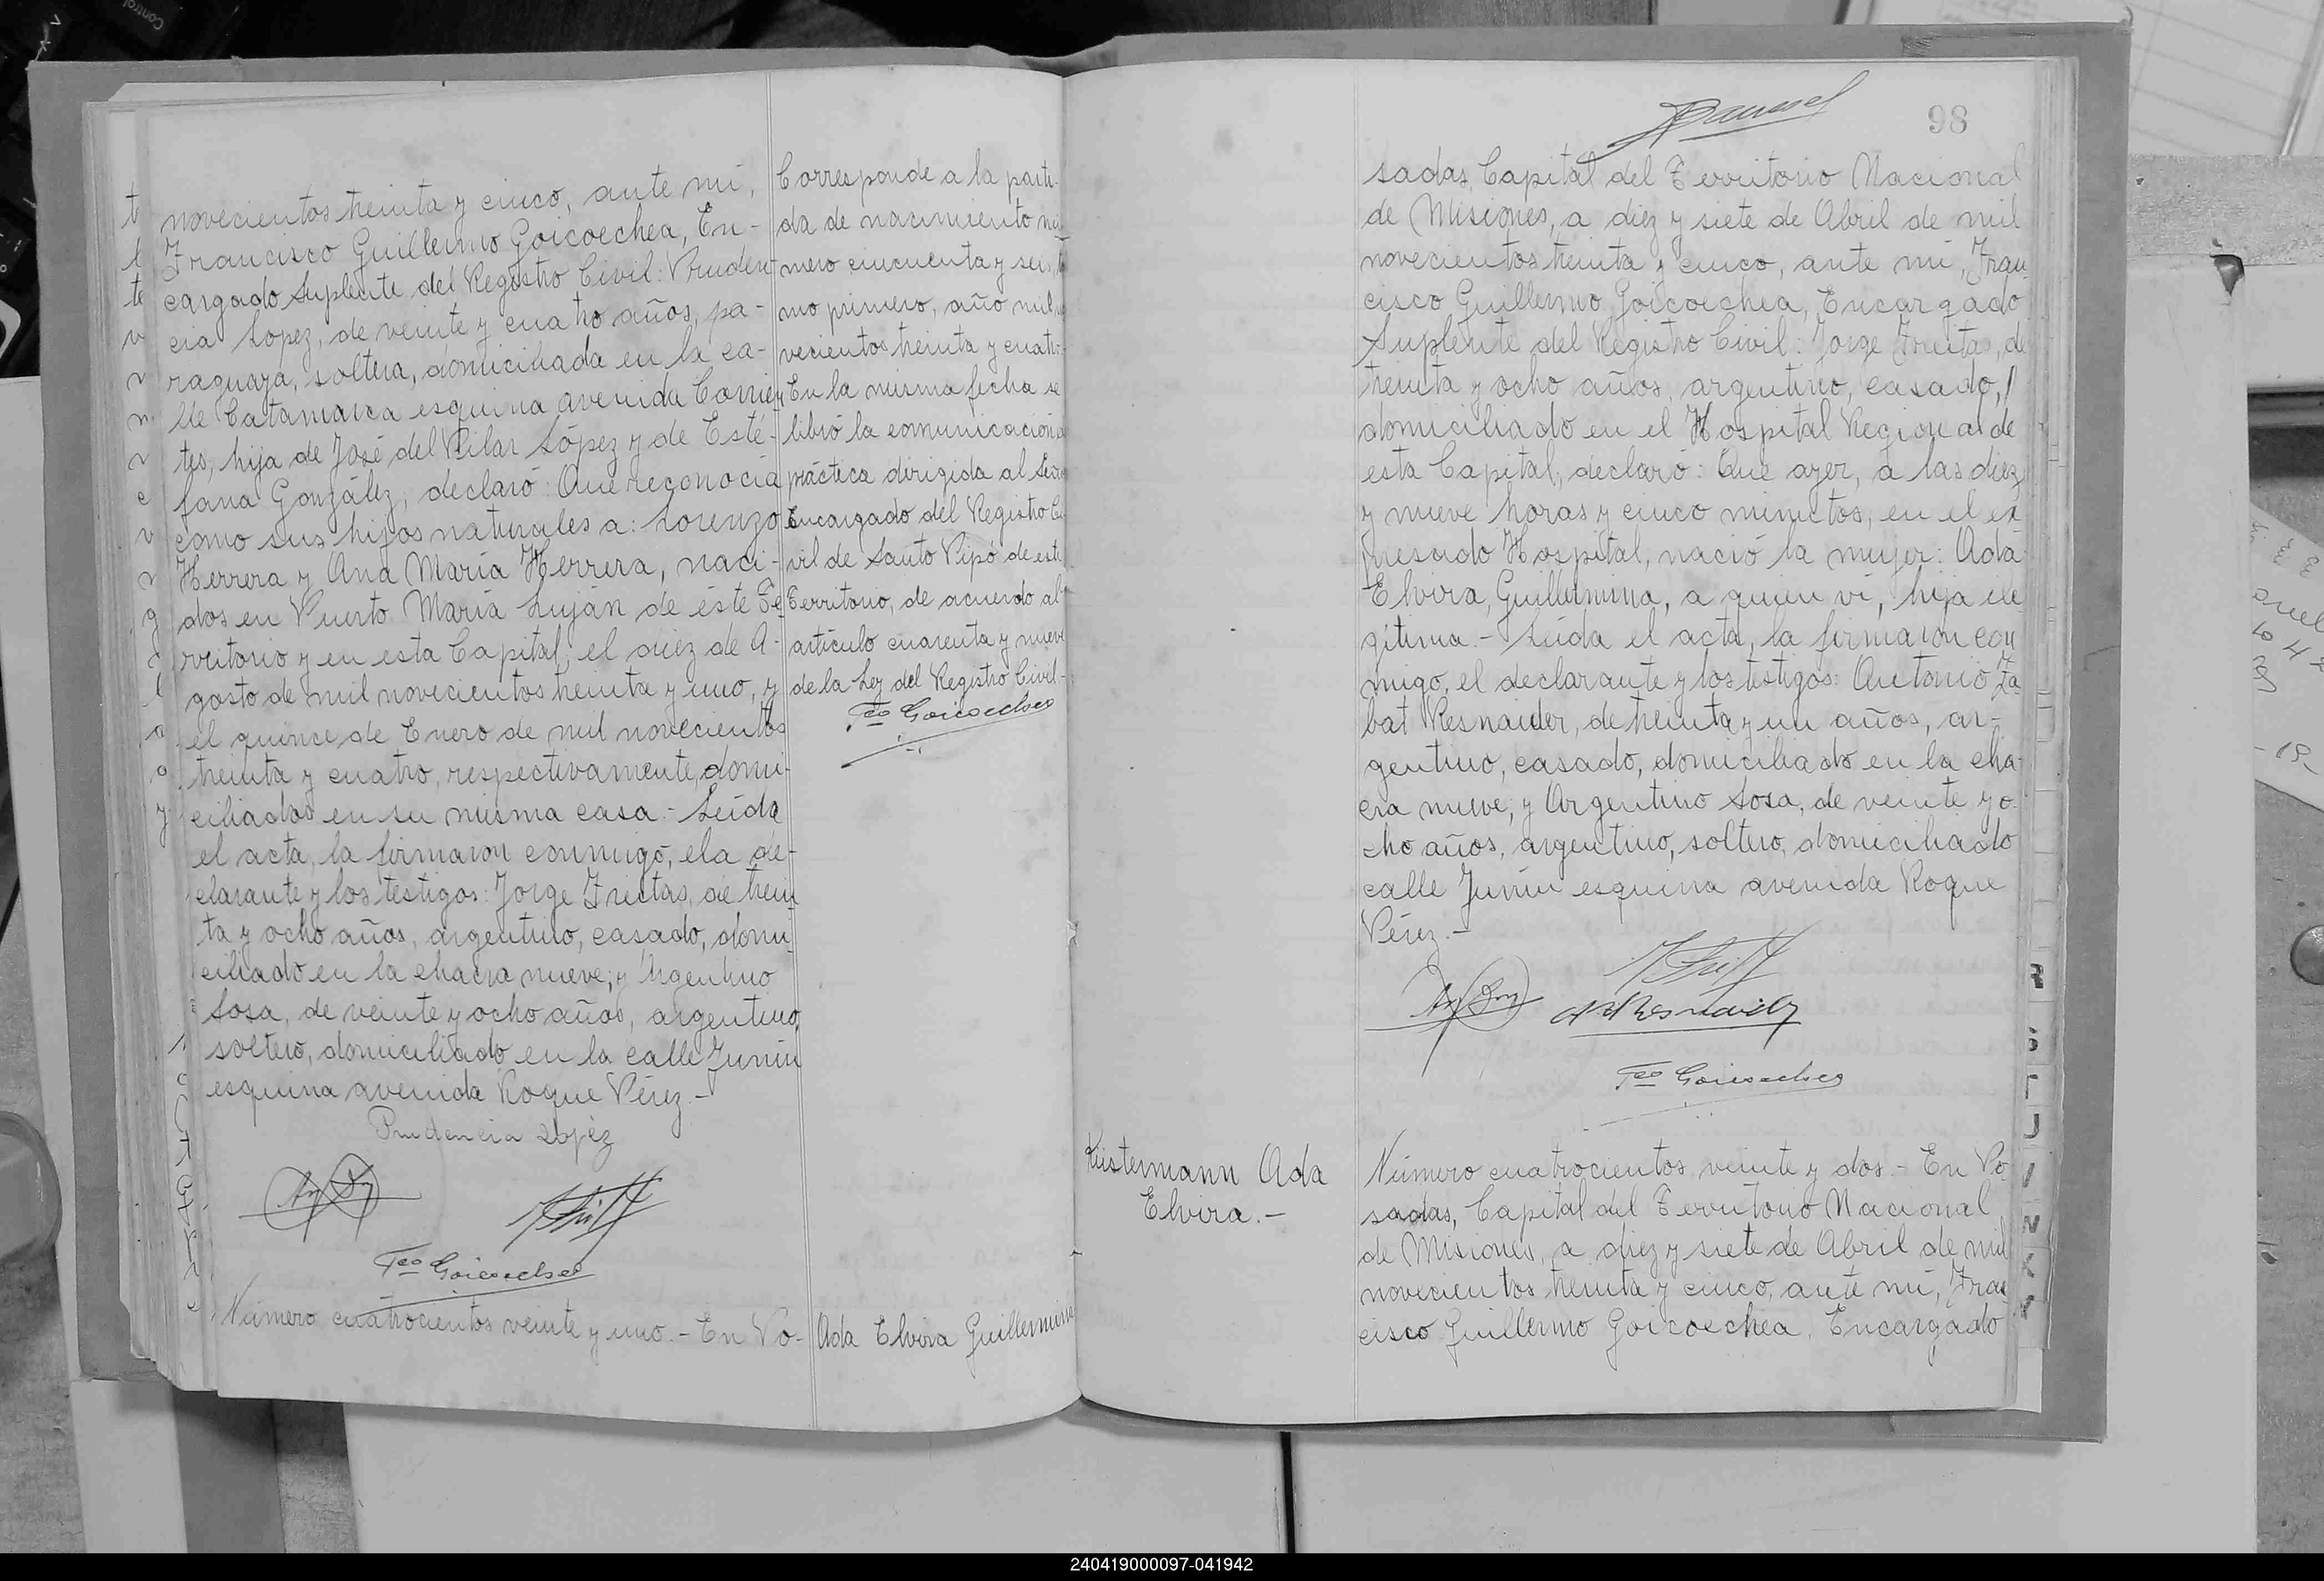 novecientos treinta y cinco, ante mí,
Francisco Guillermo Goicoechea, En-
cargado Suplente del Registro Civil: Pruden-
cia Lopez, de veinte y cuatro años, pa-
raguaya, soltera, domiciliada en la ca-
lle Catamarca esquina avenida Corrien
tes, hija de José del Pilar López y de Esté-
fana González, declaró: Que reconocía
como sus hijos naturales a: Lorenzo
Herrera y Ana María Herrera, naci-
dos en Puerto María Luján de éste Te
rritorio y en esta Capital, el diez de A-
gosto de mil novecientos treinta y uno, y
el quince de Enero de mil novecientos
treinta y cuatro, respectivamente, domi-
ciliados en su misma casa.- Leída
el acta, la firmaron conmigo, ela de-
clarante y los testigos: Jorge Freitas, de trein
ta y ocho años, argentino, casado, domi
ciliado en la chacra nueve; y Argentino
Sosa, de veinte y ocho años, argentino,
soltero, domiciliado en la calle Junín
esquina avenida Roque Pérez.-
Prudencia Lopéz
Fco Goicoechea
Número cuatrocientos veinte y uno.- En Po-
Corresponde a la parti-
da de nacimiento nú
mero cincuenta y seis, to
mo primero, año mil no
vecientos treinta y cuatro.-
En la misma fecha se
libró la comunicación
práctica dirigida al Señor
Encargado del Registro Ci
vil de Santo Pipó de este
Territorio, de acuerdo al
artículo cuarenta y nueve
de la Ley del Registro Civil.-
Fco Goicoechea
Ada Elvira Guillermina
98
sadas, Capital del Territorio Nacional
de Misiones, a diez y siete de Abril de mil
novecientos treinta y cinco, ante mí, Fran
cisco Guillermo Goicoechea, Encargado
Suplente del Registro Civil: Jorge Freitas, de
treinta y ocho años, argentino, casado,
domiciliado en el Hospital Regional de
esta Capital, declaró: Que ayer, a las diez
y nueve horas y cinco minutos, en el ex
presado Hospital, nació la mujer: Ada
Elvira, Guillermina, a quien ví, hija ile
gítima.- Leída el acta, la firmaron con
migo, el declarante y los testigos: Antonio Za
bat Resnaider, de treinta y un años, ar-
gentino, casado, domiciliado en la cha-
cra nueve; y Argentino Sosa, de veinte y o-
cho años, argentino, soltero, domiciliado
calle Junín esquina avenida Roque
Pérez.-
Fco Goicoechea
Küstermann Ada
Elvira.-
Número cuatrocientos veinte y dos.- En Po
sadas, Capital del Territorio Nacional
de Misiones, a diez y siete de Abril de mil
novecientos treinta y cinco, ante mí, Fran
cisco Guillermo Goicoechea, Encargado
240419000097-041942